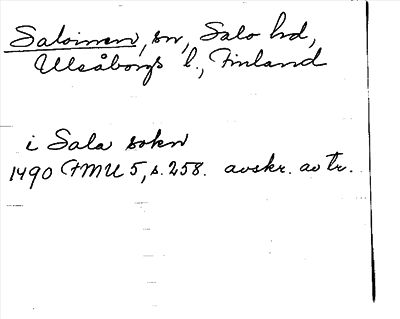 Saloinen, sn, Salo hd,
Uleåborgs l., Finland
i Sala sokn
1490 FMU 5, s. 258. avskr. av tr.